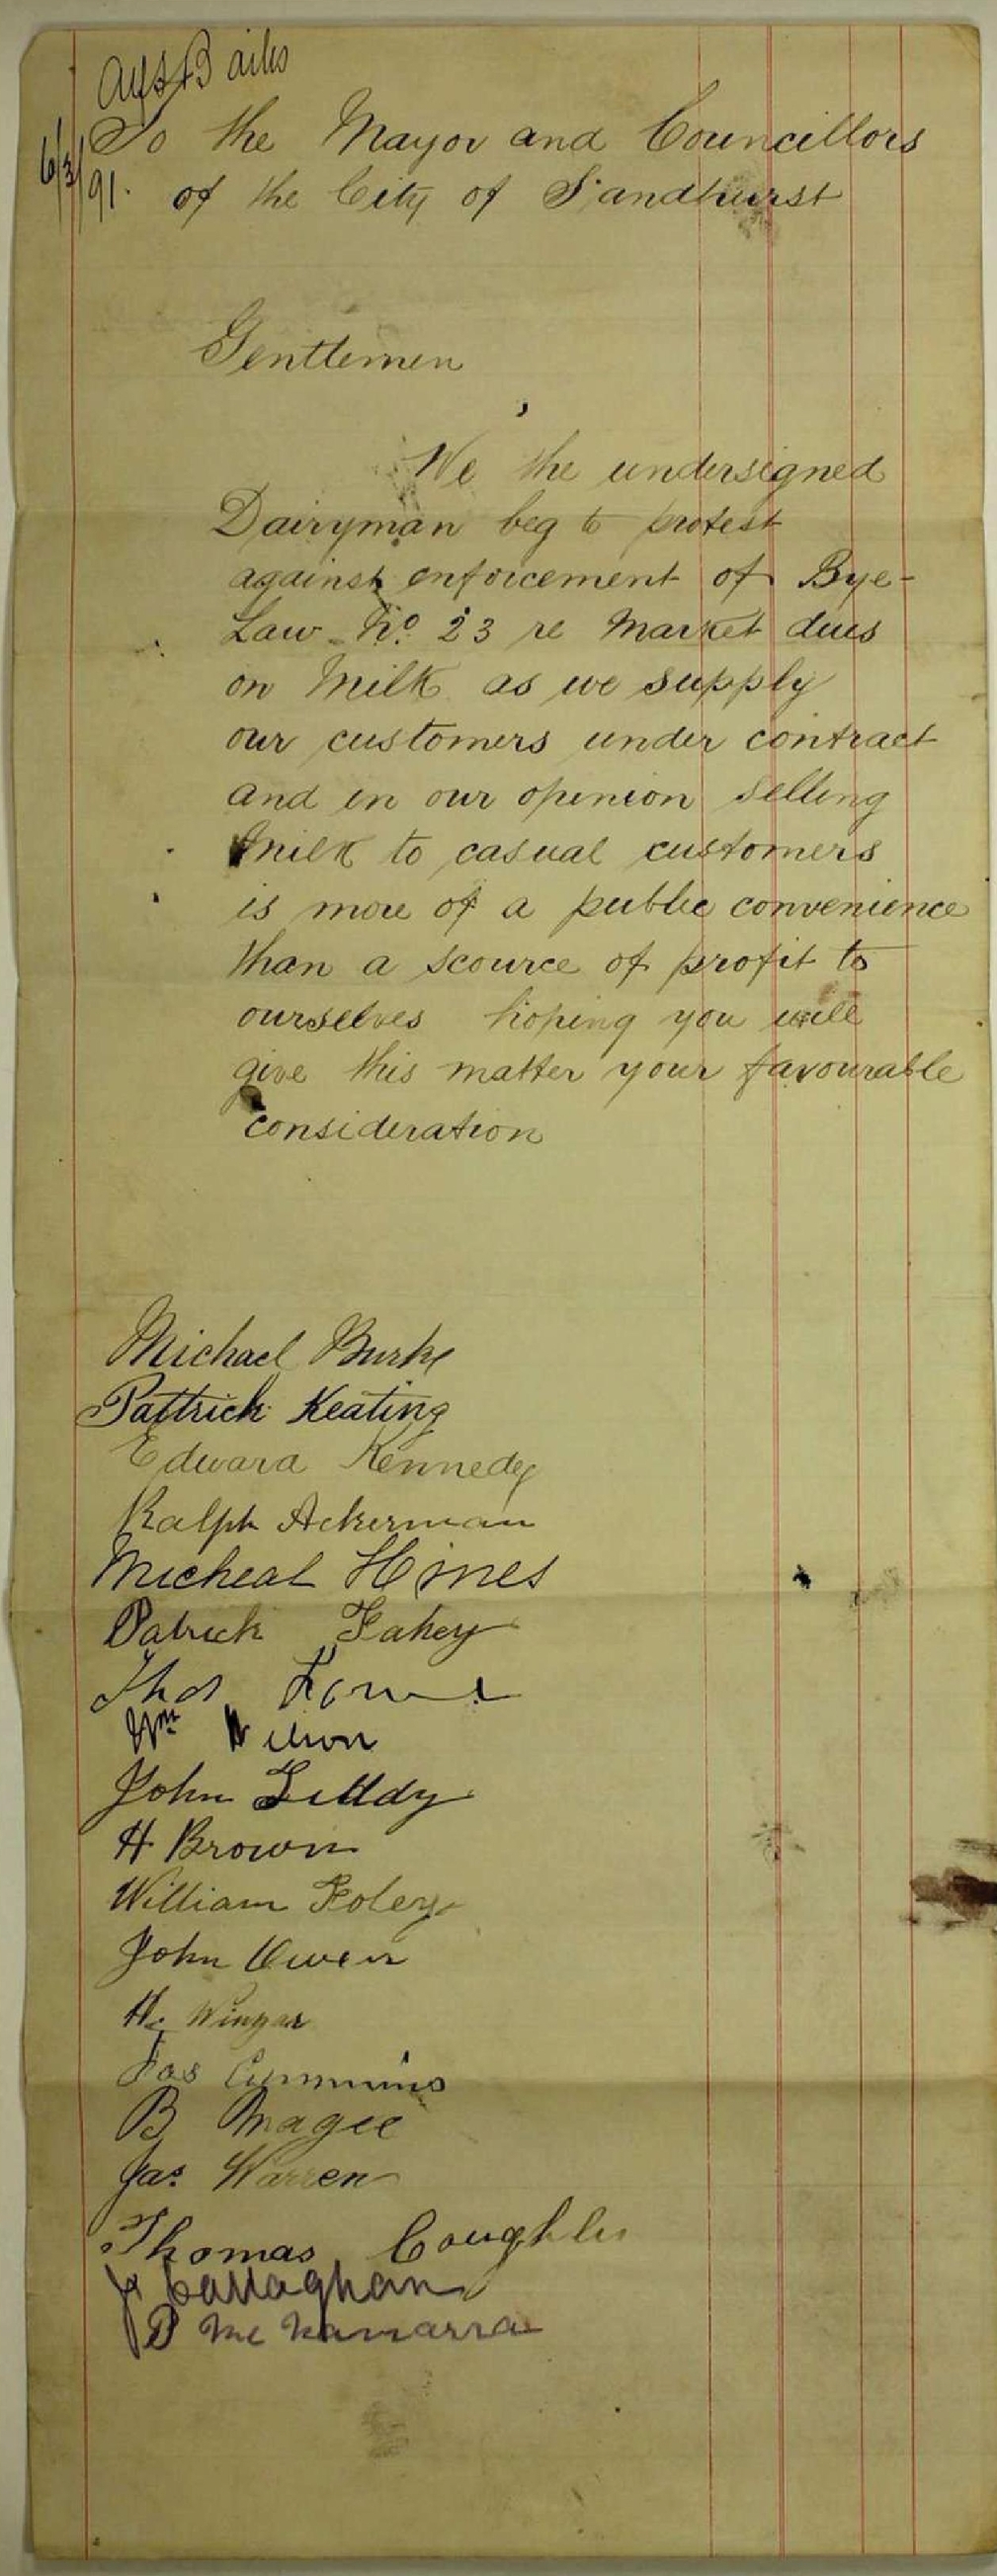 Alf Bailes
6/3/91.
To the Mayor and Councillors
of the City of Sandhurst
Gentlemen
We the undersigned
Dairyman beg to protest
against enforcement of Bye-
Law No. 23 re Market dues
on Milk as we supply
our customers under contract
and in our opinion selling
Milk to casual customers
is more of a public convenience
than a scource of profit to
ourselves hoping you will
give this matter your favourable
consideration
Michael Burke
Pattrick Keating
Edward Kennedy
Ralph Ackerman
Micheal Hines
Patrick Fahey
Thos
Wm Wilson
John Liddy
H Brown
William Foley
John Owen
H.
Jas Cummins
B Magee
Jas. Warren
Thomas Coughlin
J Callaghan
P Mc Namarra